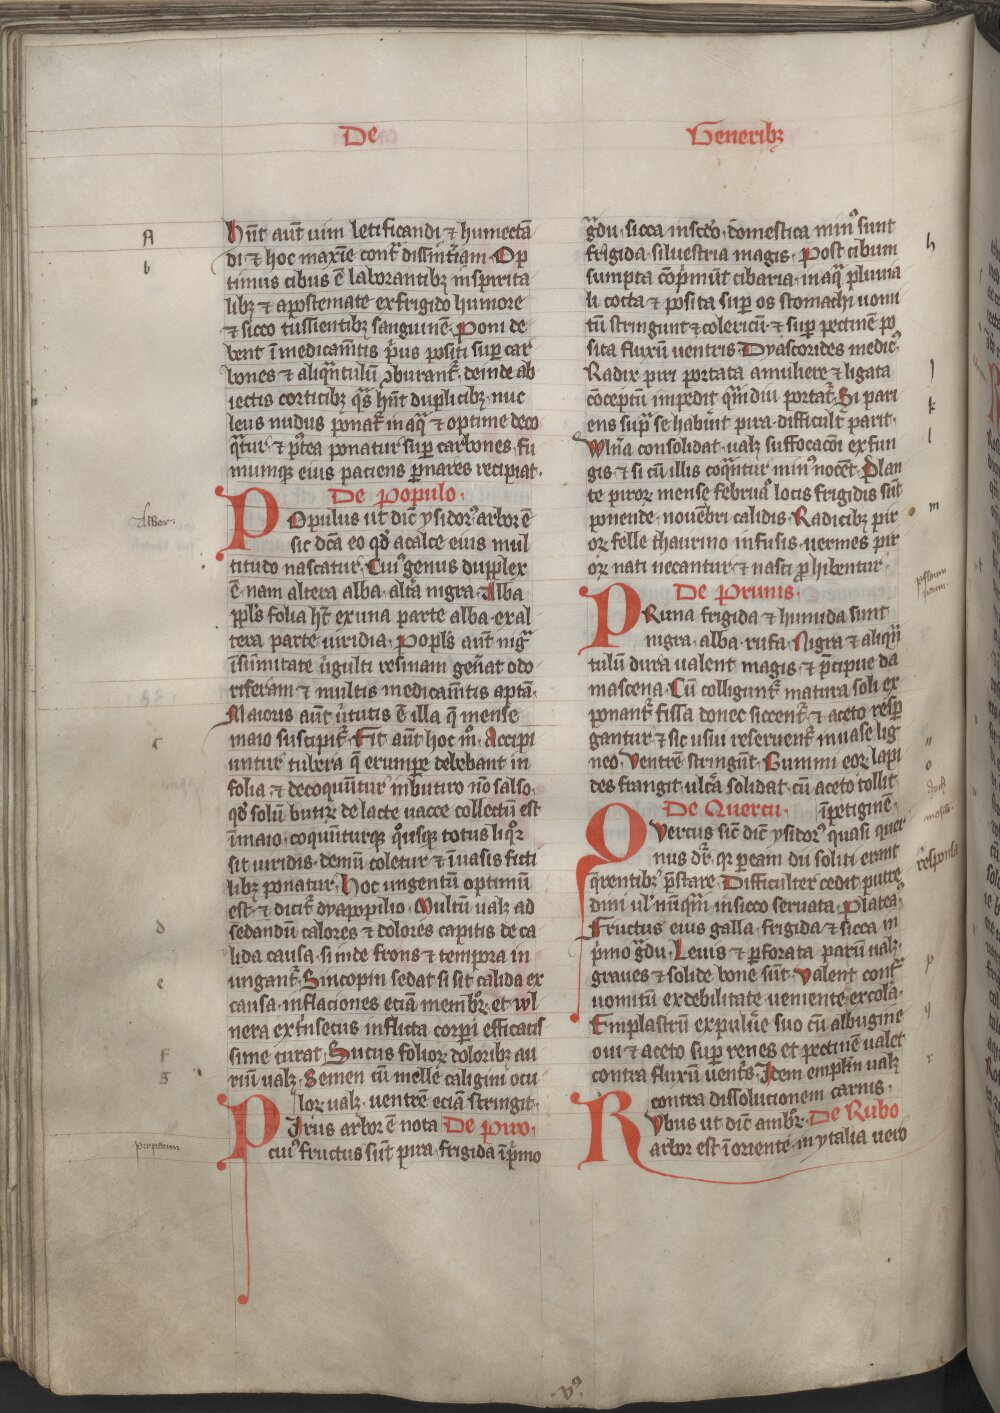 De
Generibꝫ
A
b
hn̄t aūt uim letificandi ⁊ humectā
di ⁊ hoc maxīe cont̄
timus cibus ē laborantibꝫ inspirita
libꝫ ⁊ apostemate ex frigido humore
⁊ sicco tussientibꝫ sanguinē. Poni de
bent ī medicam̄tis p̄us positi sup car
bones ⁊ aliqn̄tulū ꝯburant᷑. deinde ab
iectis corticibꝫ q̄s hn̄t duplicibꝫ nuc
leus nudus ponat᷑ in aq̄ ⁊ optime deco
q̄tur ⁊ p̄tea ponatur sup carbones. fu
mumqꝫ eius paciens p nares recipiat.
De Populo.
Arbor.
POpulus ut dic̄ ysidorꝰ arbor ē
sic dc̄a eo qd̓ a calce eius mul
titudo nascatur. Cuiꝰ genus dupplex
ē. nam altera alba. alt̄a nigra. Alba
ppl̄s folia ht̄ ex una parte alba. ex al
tera parte uiridia. Popl̄s aūt niḡ
ī sūmitate ūgulti resinam gen̄at odo
riferam ⁊ multis medicam̄tis aptā.
Maioris aūt ūtutis ē illa q̄ mense
maio suscipit᷑. Fit aūt hoc mͦ. Accipi
c
untur tubera q̄ erumpe debebant in
folia ⁊ decoquūtur in butiro nō salso.
qd̓ solū butiꝝ de lacte uacce collectū est
ī maio. coquūturqꝫ qͦusqꝫ totus liqͦr
sit uiridis. demū coletur ⁊ ī uasis ficti
libꝫ ponatur. Hoc ungentū optimū
est. ⁊ dicit᷑ dyapopilio. Multū ualꝫ ad
d
sedandū calores ⁊ dolores capitis de ca
lida causa. si inde frons ⁊ tempora in
ungant᷑. Sincopin sedat si sit calida ex
e
causa. inflaciones eciā membꝝ. et wl
nera ext̄nsecus inflicta corpi efficacis
f
sime curat. Sucus folioꝝ doloribꝫ au
g
riū ualꝫ. Semen cū melle caligini ocu
loꝝ ualꝫ. uentrē eciā stringit.
PIrius arbor ē nota De piro.
pirpaum
cuiꝰ fructus sūt pira. frigida ī p̄mo
ḡdu. sicca in sc̄do. domestica minꝰ sunt
h
frigida. siluestria magis. Post cibum
sumpta cōprimūt cibaria. in aq̄ pluuia
li cocta ⁊ posita sup os stomachi uomi
tū stringunt ⁊ colericū. ⁊ sup pectinē po
sita fluxū uentris. Dyascorides medicꝰ.
Radix piri portata a muliere ⁊ ligata
cōceptū impedit q̄mdiu portat᷑. Si pari
k
ens sup̄ se habūit pira. difficult̄ parit.
Wln̄a consolidat. ualꝫ suffocacōi ex fun
l
gis. ⁊ si cū illis coqn̄tur minꝰ nocēt. Plan
te piroꝝ mense februā locis frigidis sūt
ponende. nouēbri calidis. Radicibꝫ pir
m
oꝝ felle thaurino infusis. uermes pir
oꝝ nati necantur ⁊ nasci ꝓhibentur.
De Prunis.
PRuna frigida ⁊ humida sunt
nigra. alba. rufa. Nigra ⁊ aliqn̄
tulū dura ualent magis. ⁊ p̄cipue da
mascena. Cū colligunt᷑ matura soli ex
ponant᷑ fissa donec siccent᷑. ⁊ aceto resp
gantur ⁊ sic usui reseruent᷑ in uase lig
n
neo. Ventrē stringūt. Gummi eoꝝ lapi
o
des frangit. ulc̄a solidat. cū aceto tollit
De Quercu. īpetiginē.
QVercus sic̄ dic̄ ysidorꝰ quasi quer
nus dr̄. qꝛ p eam dii soliti erant
responsa
q̄rentibꝫ p̄stare. Difficulter cedit putre
dini ul nūq̄m in sicco seruata. Plateaꝰ.
Fructus eius galla. frigida ⁊ sicca in
p̄mo ḡdu. Leuis ⁊ pforata parū ualꝫ.
p
graues ⁊ solide bone sūt. Valent cont̄
uomitū ex debilitate ueniente ex colā.
Emplastrū ex puluīe suo cū albugine
q
oui ⁊ aceto sup renes et pectinē ualet
contra fluxū uent̄s. Idem empl̄m ualꝫ
r
contra dissolucionem carnis.
RVbus ut dic̄ ambꝛ. De Rubo
arbor est ī oriente. in ytalia uero